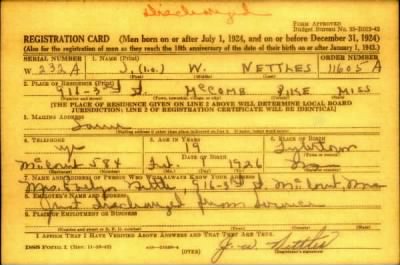 Discharged
FORM APPROVED
Budget Bureau No. 33-R013-42
REGISTRATION CARD (Men born on or after July 1, 1924, and on or before December 31, 1924)
(Also for the registration of men as they reach the 18th anniversary of the date of their birth on or after January 1, 1943.)
SERIAL NUMBER 1. NAME (Print) ORDER NUMBER
W 232A J. (I.O.) W. NETTLES 11605A
2. PLACE OF RESIDENCE (Print)
916-3rd St. McComb Pike Miss
[THE PLACE OF RESIDENCE GIVEN ON LINE 2 ABOVE WILL DETERMINE LOCAL BOARD
JURISDICTION; LINE 2 OF REGISTRATION CERTIFICATE WILL BE IDENTICAL]
3. MAILING ADDRESS
Same
4. TELEPHONE 5. AGE IN YEARS 6. PLACE OF BIRTH
19
DATE OF BIRTH
McComb 584 1926
7. NAME AND ADDRESS OF PERSON WHO WILL ALWAYS KNOW YOUR ADDRESS
Mrs. 916-3rd St. McComb, Miss
8. EMPLOYER'S NAME AND ADDRESS
Just discharged from service
9. PLACE OF EMPLOYMENT OR BUSINESS
I AFFIRM THAT I HAVE VERIFIED ABOVE ANSWERS AND THAT THEY ARE TRUE.
DSS Form 1 (Rev. 11-16-42) (OVER) J. W. Nettles